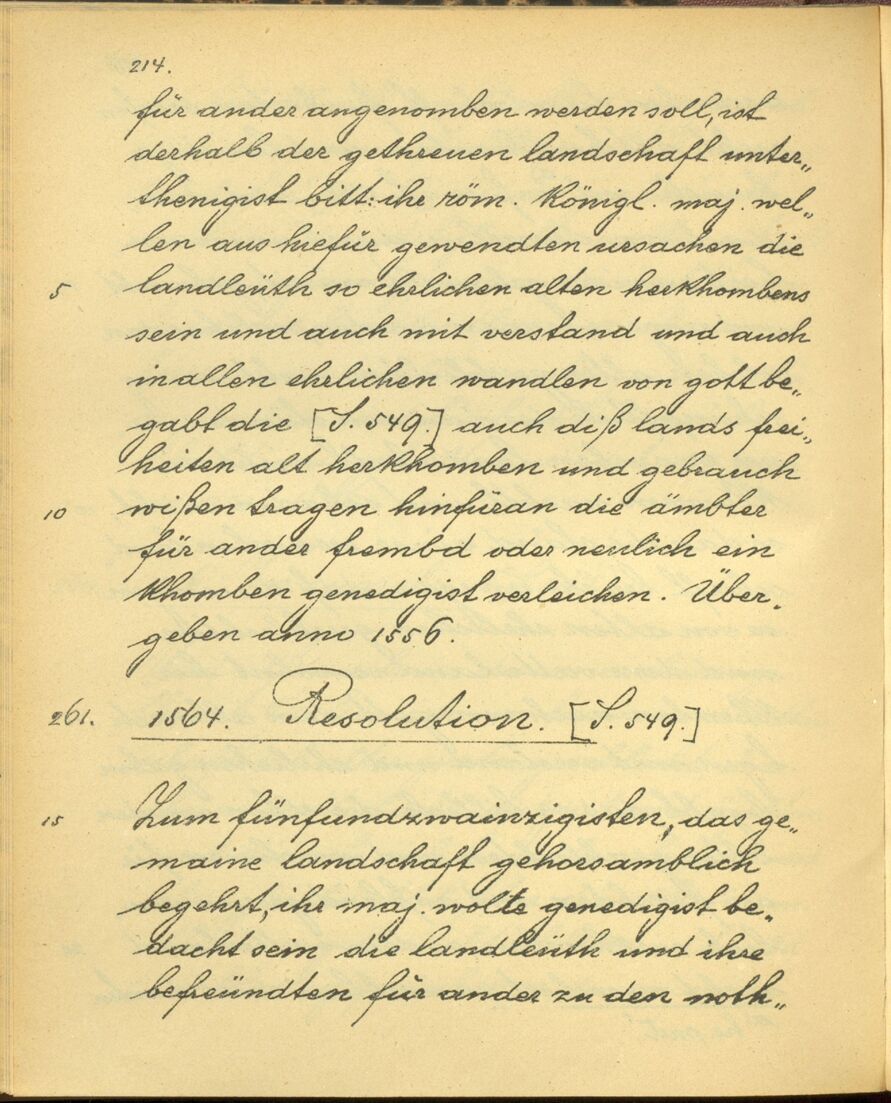 214.
für ander angenomben werden soll, ist
derhalb der gethreuen landschaft unter„
thenigist bitt: ihr röm. Königl. maj. wel„
len aus hiefür gewendten ursachen die
5 landleüth so ehrlichen alten herkhombens
sein und auch mit verstand und auch
in allen ehrlichen wandlen von gott be„
gabt die [S. 549.] auch diß lands frei„
heiten alt herkhomben und gebrauch
10 wißen tragen hinfüran die ämbter
für ander frembd oder neulich ein
khomben genedigist verleichen. Über„
geben anno 1556.
261. 1564. Resolution. [S. 549.]
15 Zum fünfundzwainzigisten, das ge„
maine landschaft gehorsamblich
begehrt, ihr maj. wolte genedigist be„
dacht sein die landleüth und ihre
befreündten für ander zu den noth„